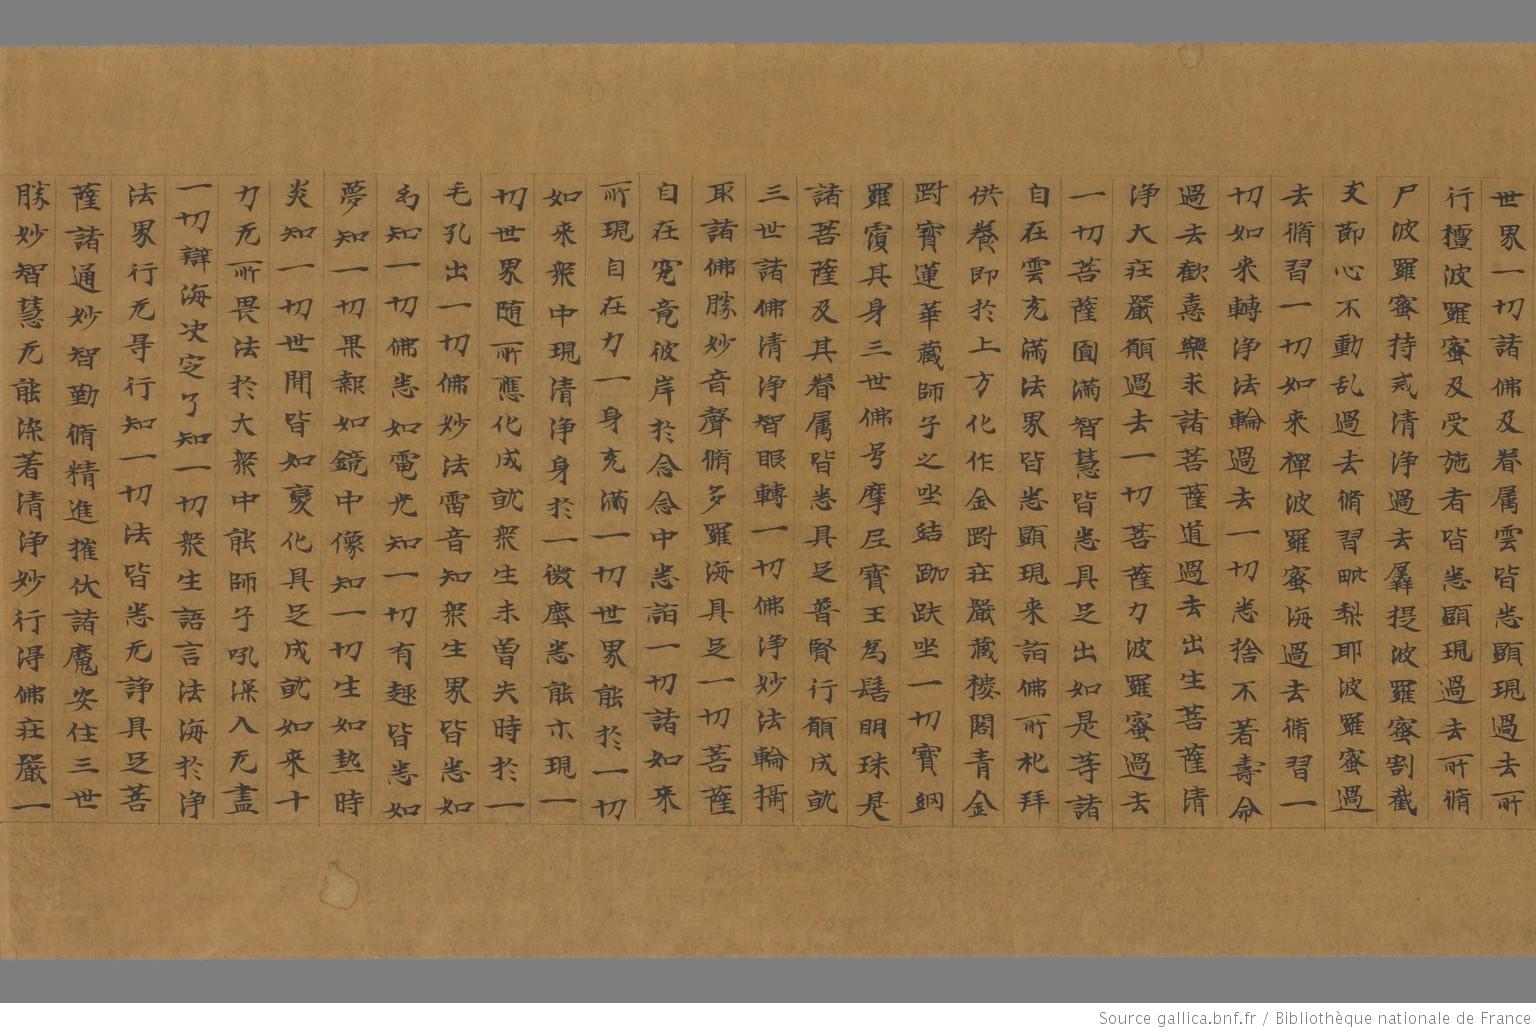 世界一切諸佛及眷属雲皆悉顯現過去所
行檀波羅蜜及受施者皆悉顯現過去所脩
尸波羅蜜持戒清浄過去羼提波羅蜜割截
支節心不動乱過去脩習毗梨耶波羅蜜過
去脩習一切如来禪波羅蜜海過去脩習一
切如来轉浄法輪過去一切悉捨不著壽命
過去歡憙樂求諸菩薩道過去出生菩薩清
浄大庄嚴願過去一切菩薩力波羅蜜過去
一切菩薩圎滿智慧皆悉具足出如是等諸
自在雲充滿法界皆悉顯現来詣佛所礼拜
供養即於上方化作金剛庄嚴藏楼閣青金
剛寶蓮華藏師子之坐結跏趺坐一切寶網
羅覆其身三世佛号摩尼寶王為髻明珠是
諸菩薩及其眷属皆悉具足普賢行願成就
三世諸佛清浄智眼轉一切佛浄妙法輪攝
取諸佛勝妙音聲脩多羅海具足一切菩薩
自在究竟彼岸於念念中悉詣一切諸如来
所現自在力一身充滿一切世界能於一切
如来衆中現清浄身於一微塵悉能示現一
切世界随所應化成就衆生未曽失時於一
毛孔出一切佛妙法雷音知衆生界皆悉如
幻知一切佛悉如電光知一切有趣皆悉如
夢知一切果報如鏡中像知一切生如热時
炎知一切世間皆如變化具足成就如来十
力无所畏法於大衆中能師子吼深入无盡
一切辯海决定了知一切衆生語言法海於浄
法界行无㝵行知一切法皆悉无諍具足菩
薩諸通妙智勤脩精進摧伏諸魔安住三世
勝妙智慧无能染著清浄妙行得佛庄嚴一
Source gallica.bnf.fr / Bibliothèque nationale de France